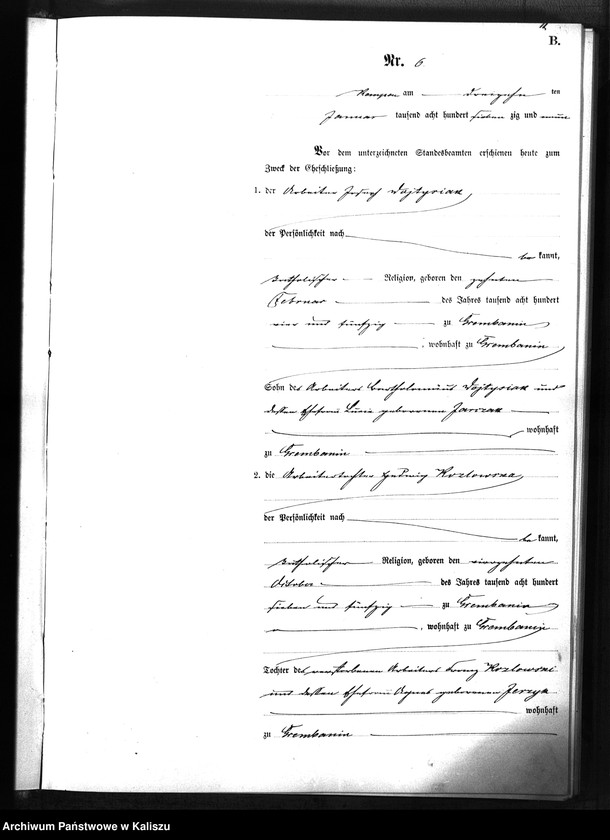 B.
Nr. 6
Kempen am dreizehn ten
Januar tausend acht hundert sieben zig und neun
Vor dem unterzeichneten Standesbeamten erschienen heute zum
Zweck der Eheschließung:
1. der Arbeiter Joseph Wojtysiak
der Persönlichkeit nach
be kannt,
katholischer Religion, geboren den zehnten
Februar des Jahres tausend acht hundert
vier und fünfzig zu Trembanin
, wohnhaft zu Trembanin
Sohn des Arbeiters Bartholomäus Wojtysiak und
dessen Ehefrau geborenen Jarczak
wohnhaft
zu Trembanin
2. die Arbeitertochter Hedwig Kozlowska
der Persönlichkeit nach
be kannt,
katholischer Religion, geboren den vierzehnten
Oktober des Jahres tausend acht hundert
sieben und fünfzig zu Trembanin
, wohnhaft zu Trembanin
Tochter des verstorbenen Arbeiters Franz Kozlowski
und dessen Ehefrau Agnes geborenen Jerzyk
wohnhaft
zu Trembanin
Archiwum Państwowe w Kaliszu